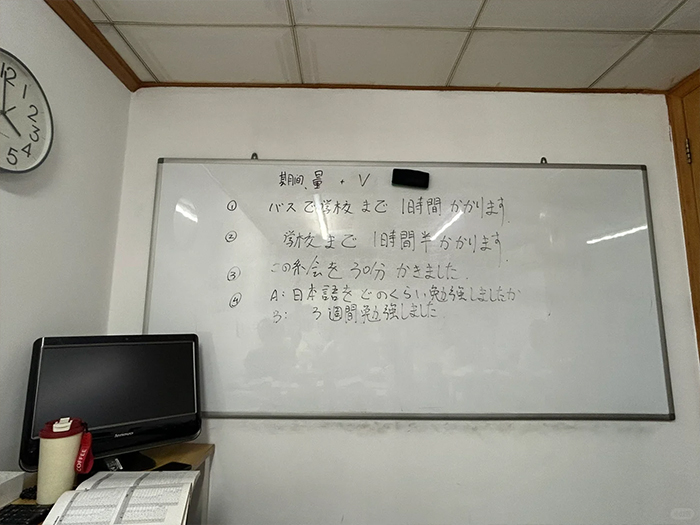 期间、量 + V
① バスで学校まで 1時間かかります.
② 学校まで 1時間半かかります.
③ この絵を 30分 かきました.
④ A: 日本語をどのくらい勉強しましたか
B: 3週間勉強しました.
12
1
2
3
4
5
lenovo
COFFEE